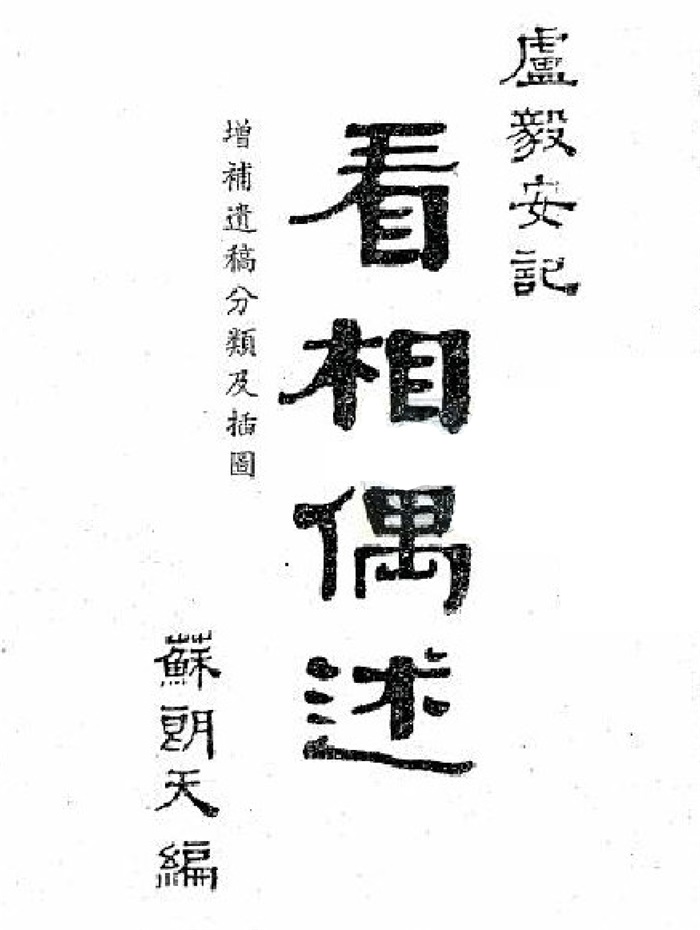 盧毅安記
看相偶述
增補遺稿分類及插圖
蘇朗天編